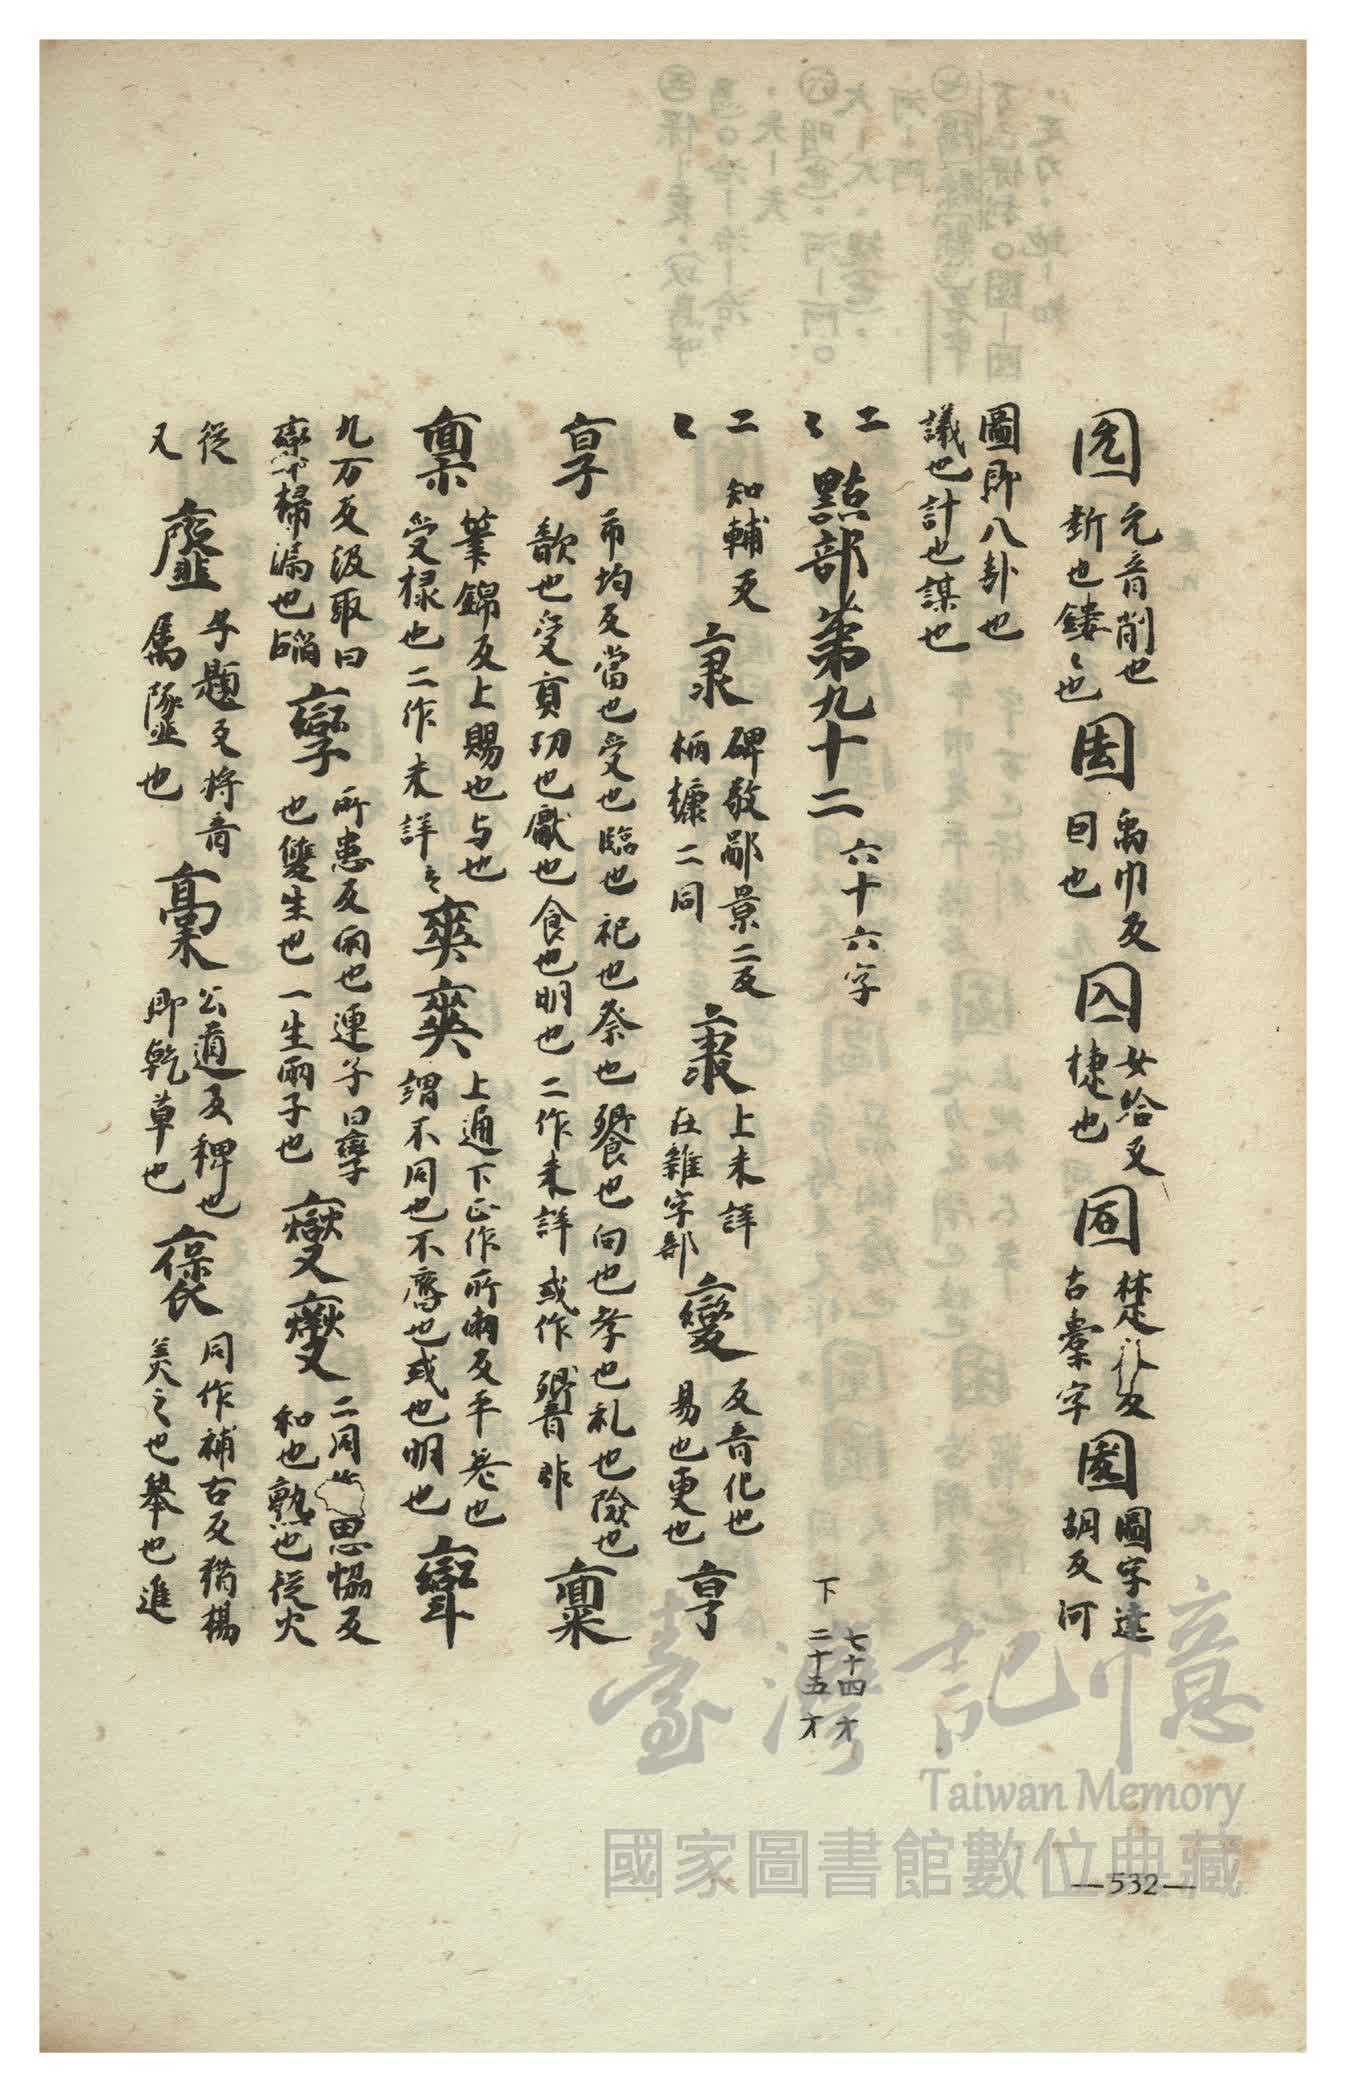 园 元音削也 斲也鏤〻也 㘣 禹巾反 回也 囚 女洽反 㨗也 𡇈 楚江反 古窻字 圂 圖字達胡反河
圖即八卦也 議也計也謀也
亠 點部第九十二 六十六字 下 七十四才 二十五才
亠 知輔反 碑敬鄙景二反 柄棅二同 上未詳 在雜字部 變 反音化也 易也更也 亨
享 市均反當也受也臨也祀也祭也饗也向也孝也礼也險也 歆也受貢功也獻也食也明也二作未詳或作 非
稟 筆錦反上賜也与也 受祿也二作未詳之 上通下正作所兩反平差也 謂不同也不膺也或也明也
九万反汲取曰 帚漏也 孿 所患反兩也連子曰孿 也雙生也一生兩子也 燮 二同 思協反 和也熟也從火
從又 齏 子題反將音 屬 也 稾 公道反稈也 即乾草也 褒 同作補古反猶揚 美之也舉也進
—532—
臺灣記憶
Taiwan Memory
國家圖書館數位典藏